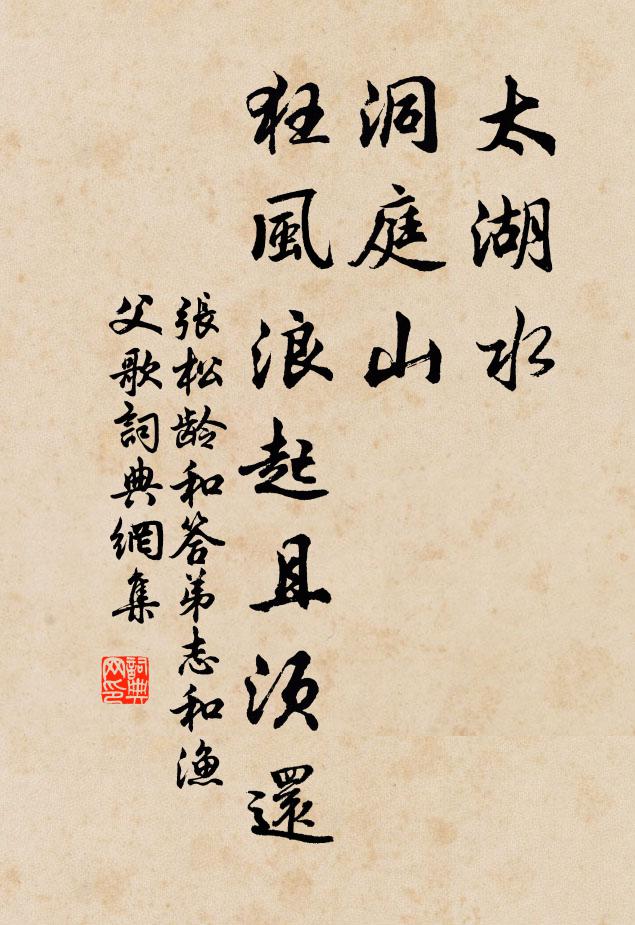 太湖水
洞庭山
狂風浪起且須還
張松龄和答弟志和漁
父歌詞典網集
詞典网印